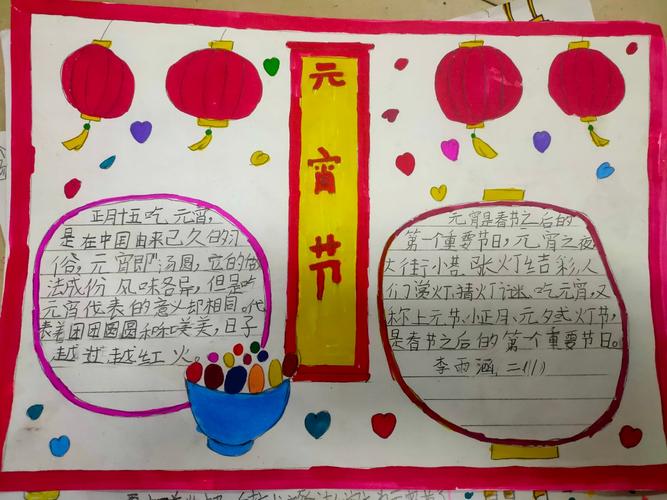 元宵节
正月十五吃元宵,
是在中国由来已久的习
俗,元宵即"汤圆,它的做
法成份风味各异,但是吃
元宵代表的意义却相同。代
表着团团圆圆和和美美,日子
越过越红火。
元宵是春节之后的
第一个重要节日,元宵之夜
大街小巷张灯结彩人
们赏灯,猜灯谜、吃元宵,又
称上元节、小正月、元夕或灯节,
是春节之后的第一个重要节日。
李雨涵,二(1)